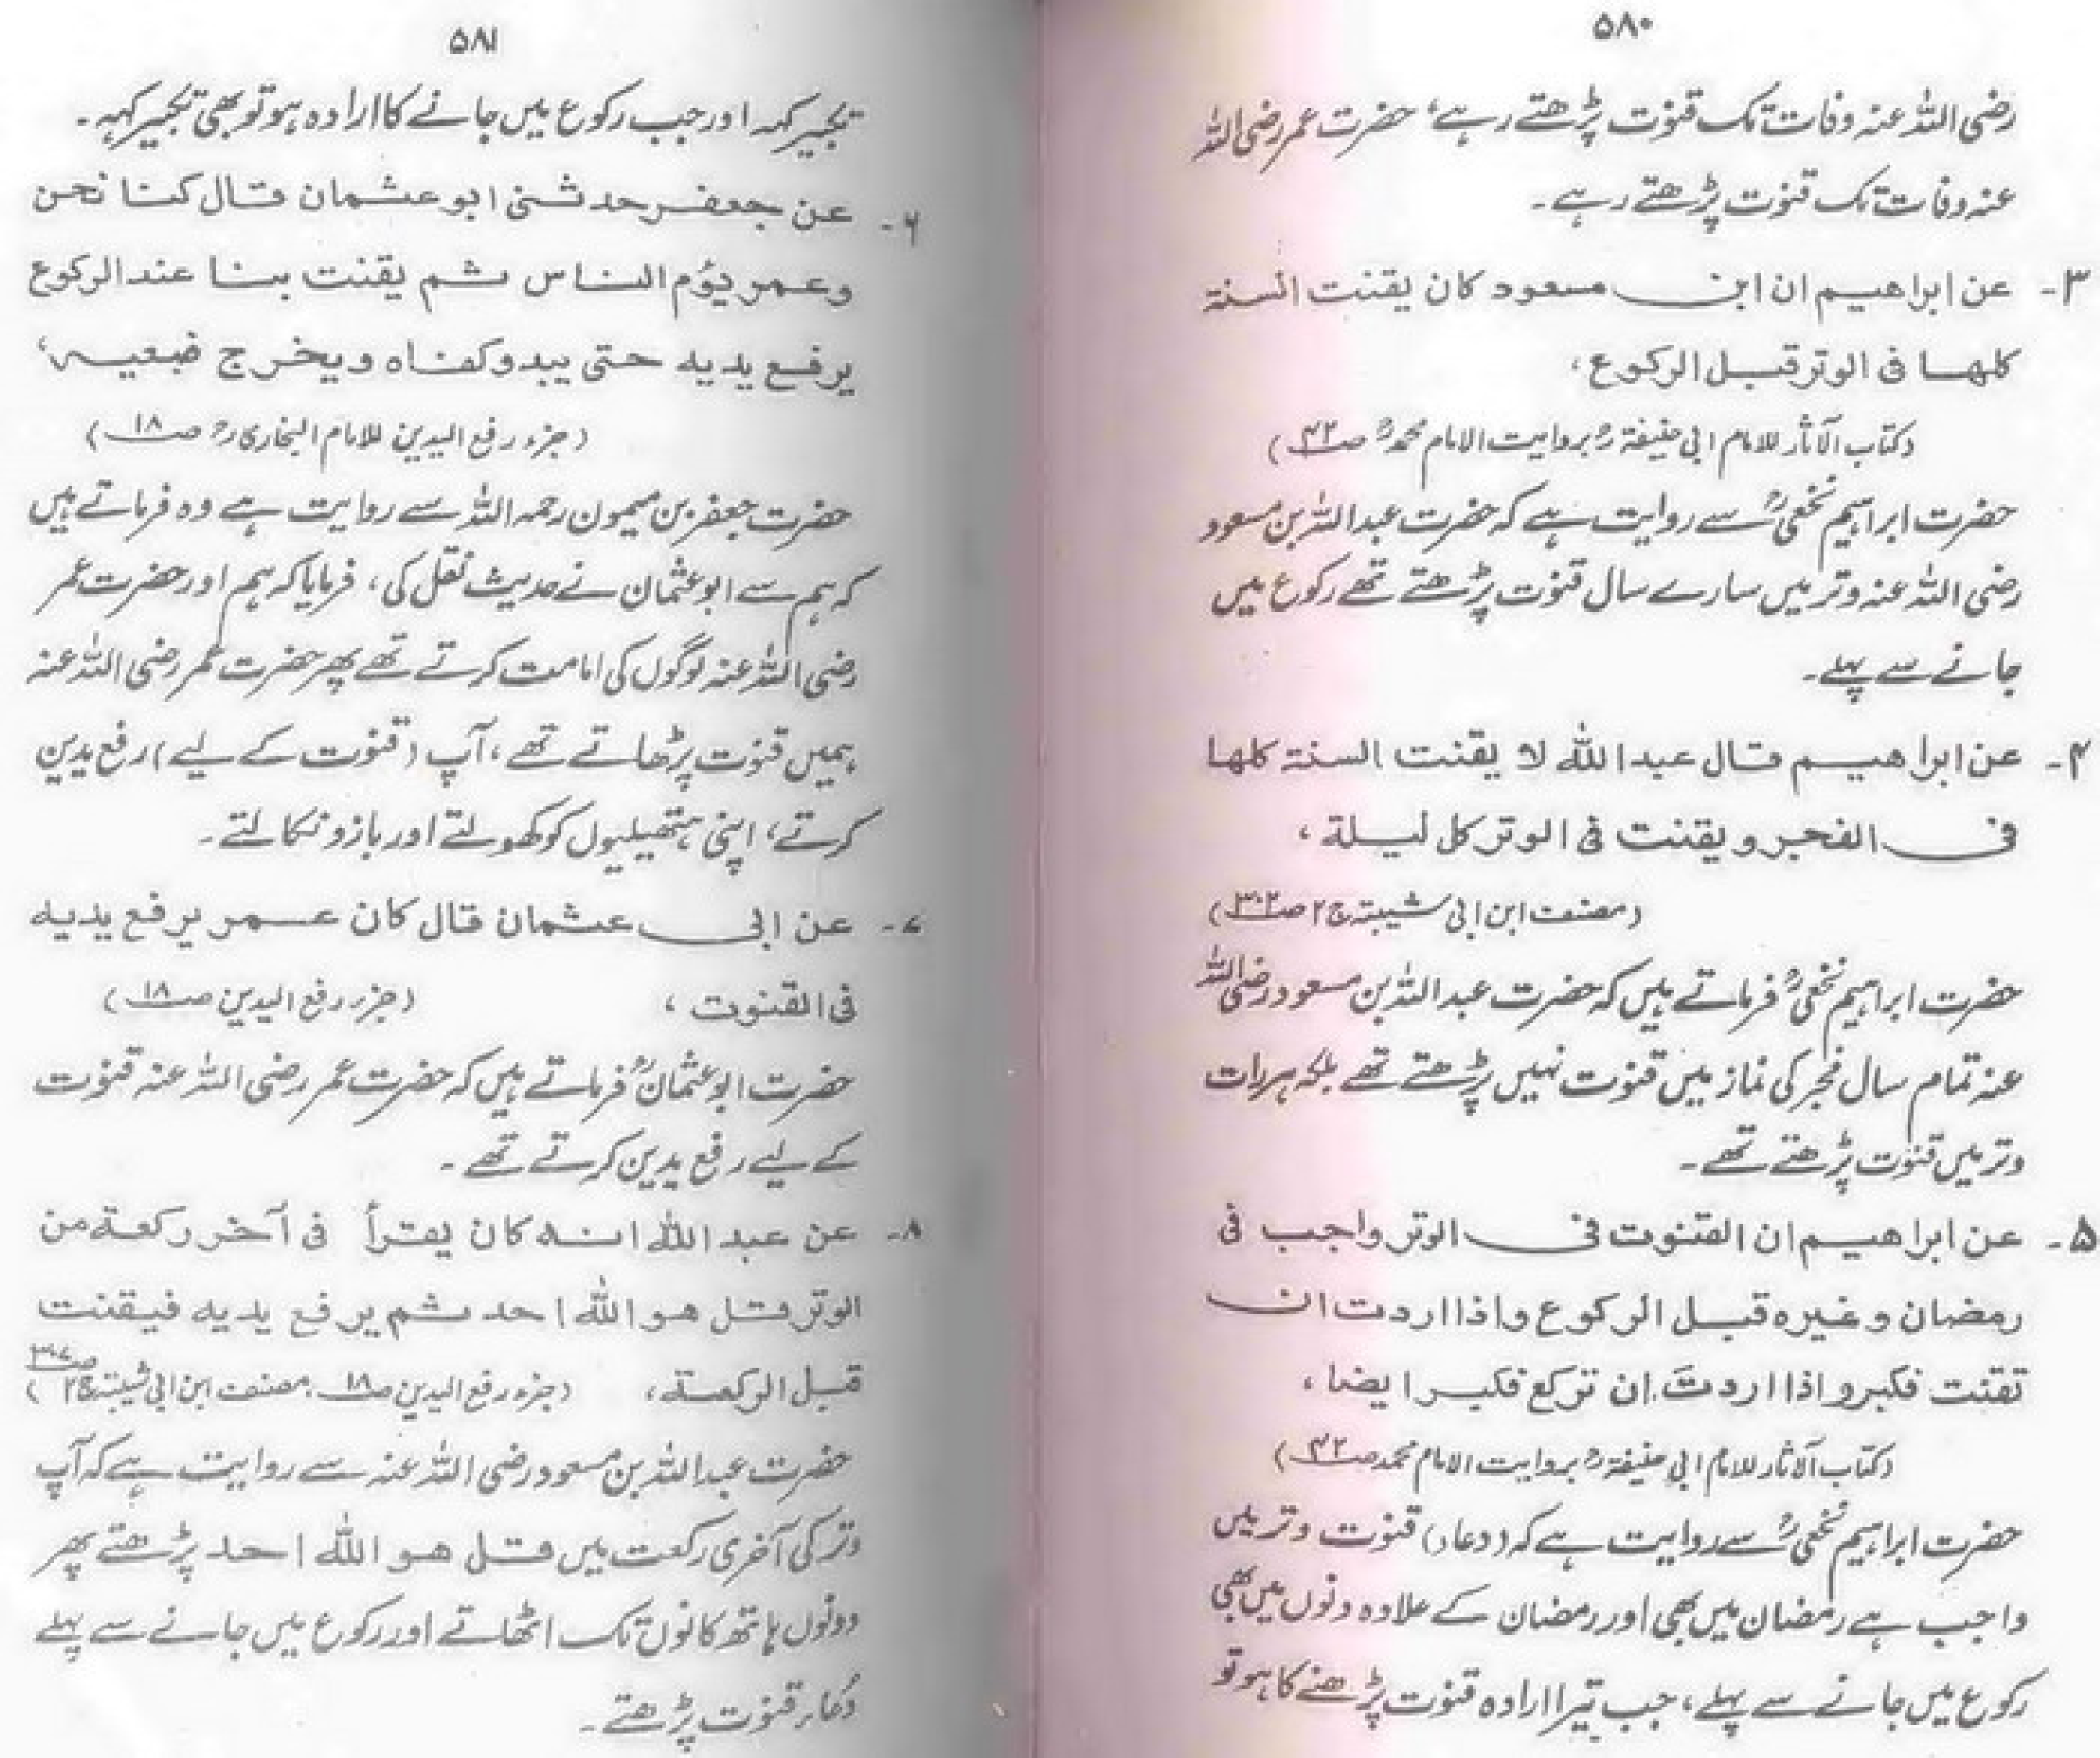 ۵۸۰
رضی اللہ عنہ وفات تک قنوت پڑھتے رہے، حضرت عمر رضی اللہ
عنہ وفات تک قنوت پڑھتے رہے۔
۳۔ عن ابراهیم ان ابن مسعود کان یقنت السنة
کلها فی الوتر قبل الرکوع،
(کتاب الآثار للامام ابی حنیفۃؒ بروایت الامام محمدؒ صـ۴۲)
حضرت ابراہیم نخعیؒ سے روایت ہے کہ حضرت عبداللہ بن مسعود
رضی اللہ عنہ وتر میں سارے سال قنوت پڑھتے تھے رکوع میں
جانے سے پہلے۔
۴۔ عن ابراهیم قال عبد الله لا یقنت السنة کلها
فی الفجر و یقنت فی الوتر کل لیلة،
(مصنف ابن ابی شیبۃ ج۲ صـ۳۰۲)
حضرت ابراہیم نخعیؒ فرماتے ہیں کہ حضرت عبداللہ بن مسعود رضی اللہ
عنہ تمام سال فجر کی نماز میں قنوت نہیں پڑھتے تھے بلکہ ہر رات
وتر میں قنوت پڑھتے تھے۔
۵۔ عن ابراهیم ان القنوت فی الوتر واجب فی
رمضان و غیره قبل الرکوع واذا اردت ان
تقنت فکبر واذا اردتَ ان ترکع فکبر ایضا،
(کتاب الآثار للامام ابی حنیفۃؒ بروایت الامام محمد صـ۴۲)
حضرت ابراہیم نخعیؒ سے روایت ہے کہ (دعاء) قنوت وتر میں
واجب ہے رمضان میں بھی اور رمضان کے علاوہ دنوں میں بھی
رکوع میں جانے سے پہلے، جب تیرا ارادہ قنوت پڑھنے کا ہو تو
۵۸۱
تکبیر کہہ اور جب رکوع میں جانے کا ارادہ ہو تو بھی تکبیر کہہ۔
۶۔ عن جعفر حدثنی ابو عثمان قال کنا نحن
وعمر یؤم الناس ثم یقنت بنا عند الرکوع
یرفع یدیه حتی یبدو کفاه ویخرج ضبعیه،
(جزء رفع الیدین للامام البخاریؒ صـ۱۸)
حضرت جعفر بن میمون رحمہ اللہ سے روایت ہے وہ فرماتے ہیں
کہ ہم سے ابو عثمان نے حدیث نقل کی، فرمایا کہ ہم اور حضرت عمر
رضی اللہ عنہ لوگوں کی امامت کرتے تھے پھر حضرت عمر رضی اللہ عنہ
ہمیں قنوت پڑھاتے تھے، آپ (قنوت کے لیے) رفع یدین
کرتے، اپنی ہتھیلیوں کو کھولتے اور بازو نکالتے۔
۷۔ عن ابی عثمان قال کان عمر یرفع یدیه
فی القنوت، (جزء رفع الیدین صـ۱۸)
حضرت ابو عثمانؒ فرماتے ہیں کہ حضرت عمر رضی اللہ عنہ قنوت
کے لیے رفع یدین کرتے تھے۔
۸۔ عن عبد الله انه کان یقرأ فی آخر رکعة من
الوتر قل هو الله احد ثم یرفع یدیه فیقنت
قبل الرکعة، (جزء رفع الیدین صـ۱۸، مصنف ابن ابی شیبۃ ج۲ صـ۳۰۷)
حضرت عبداللہ بن مسعود رضی اللہ عنہ سے روایت ہے کہ آپ
وتر کی آخری رکعت میں قل هو الله احد پڑھتے پھر
دونوں ہاتھ کانوں تک اٹھاتے اور رکوع میں جانے سے پہلے
دُعاء قنوت پڑھتے۔